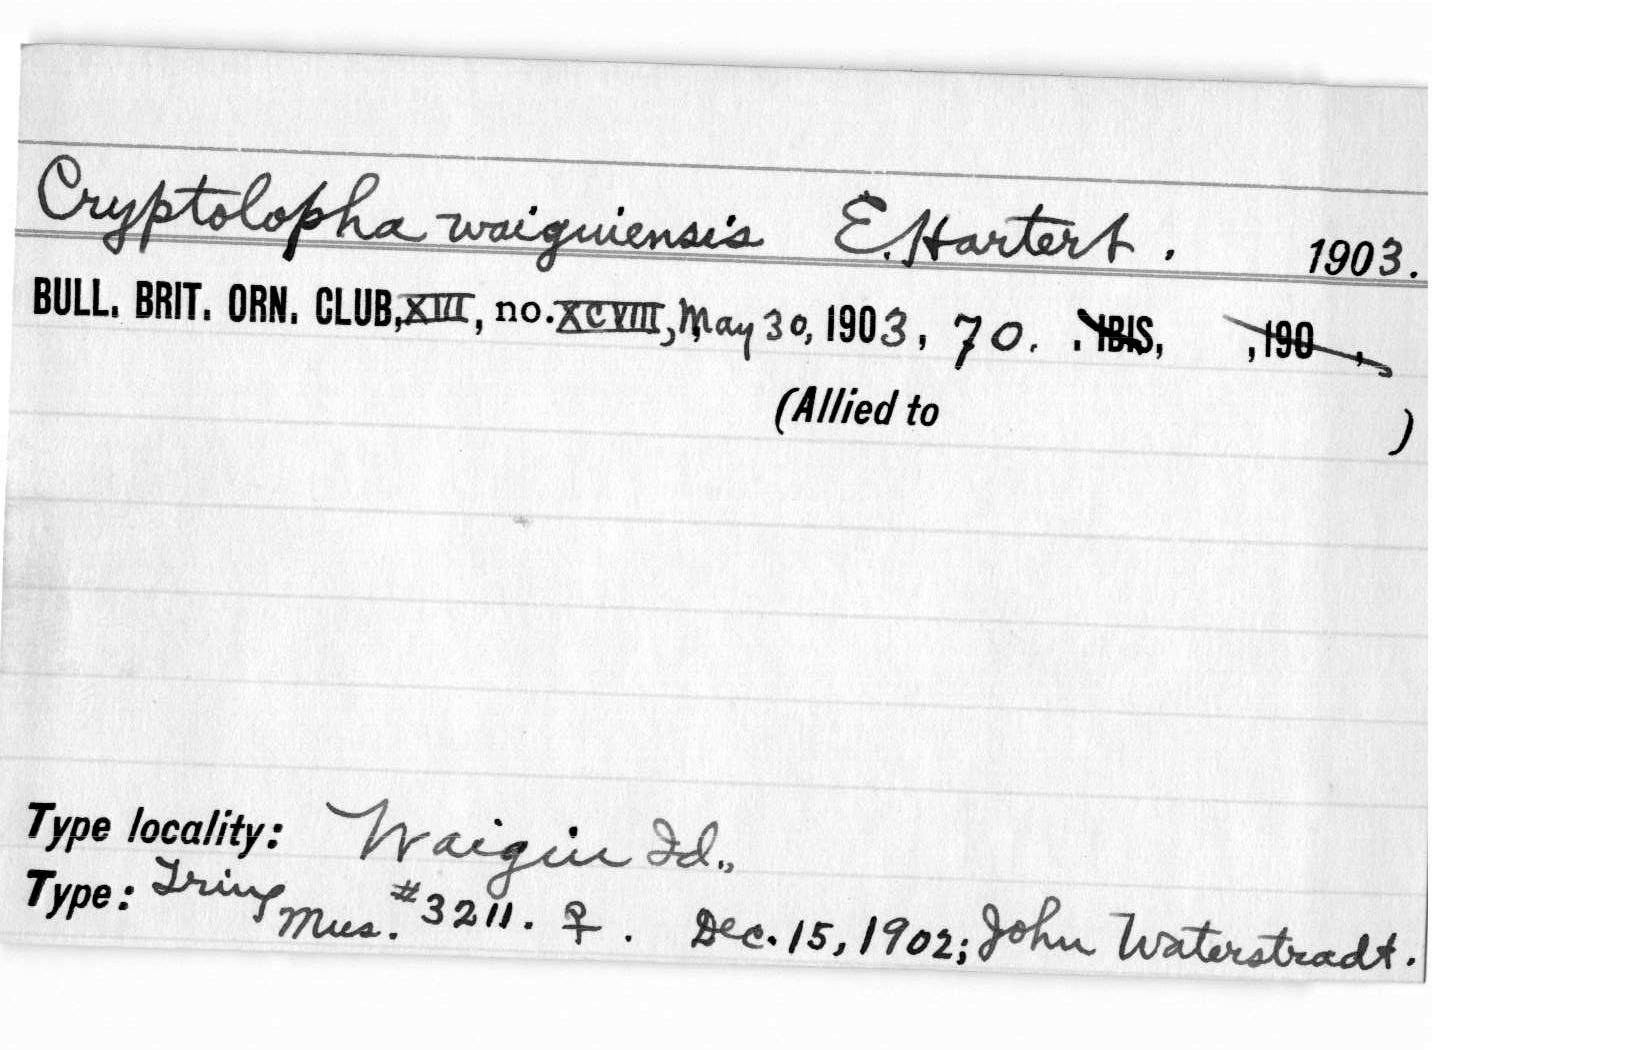 Cryptolopha waiguiensis E. Hartert. 1903.
BULL. BRIT. ORN. CLUB, XIII, no. XCVIII, May 30, 1903, 70. . IBIS, ,190 ,
(Allied to )
Type locality: Waigiu Id.,
Type: Tring Mus. #3211. ♀. Dec. 15, 1902; John Waterstradt.